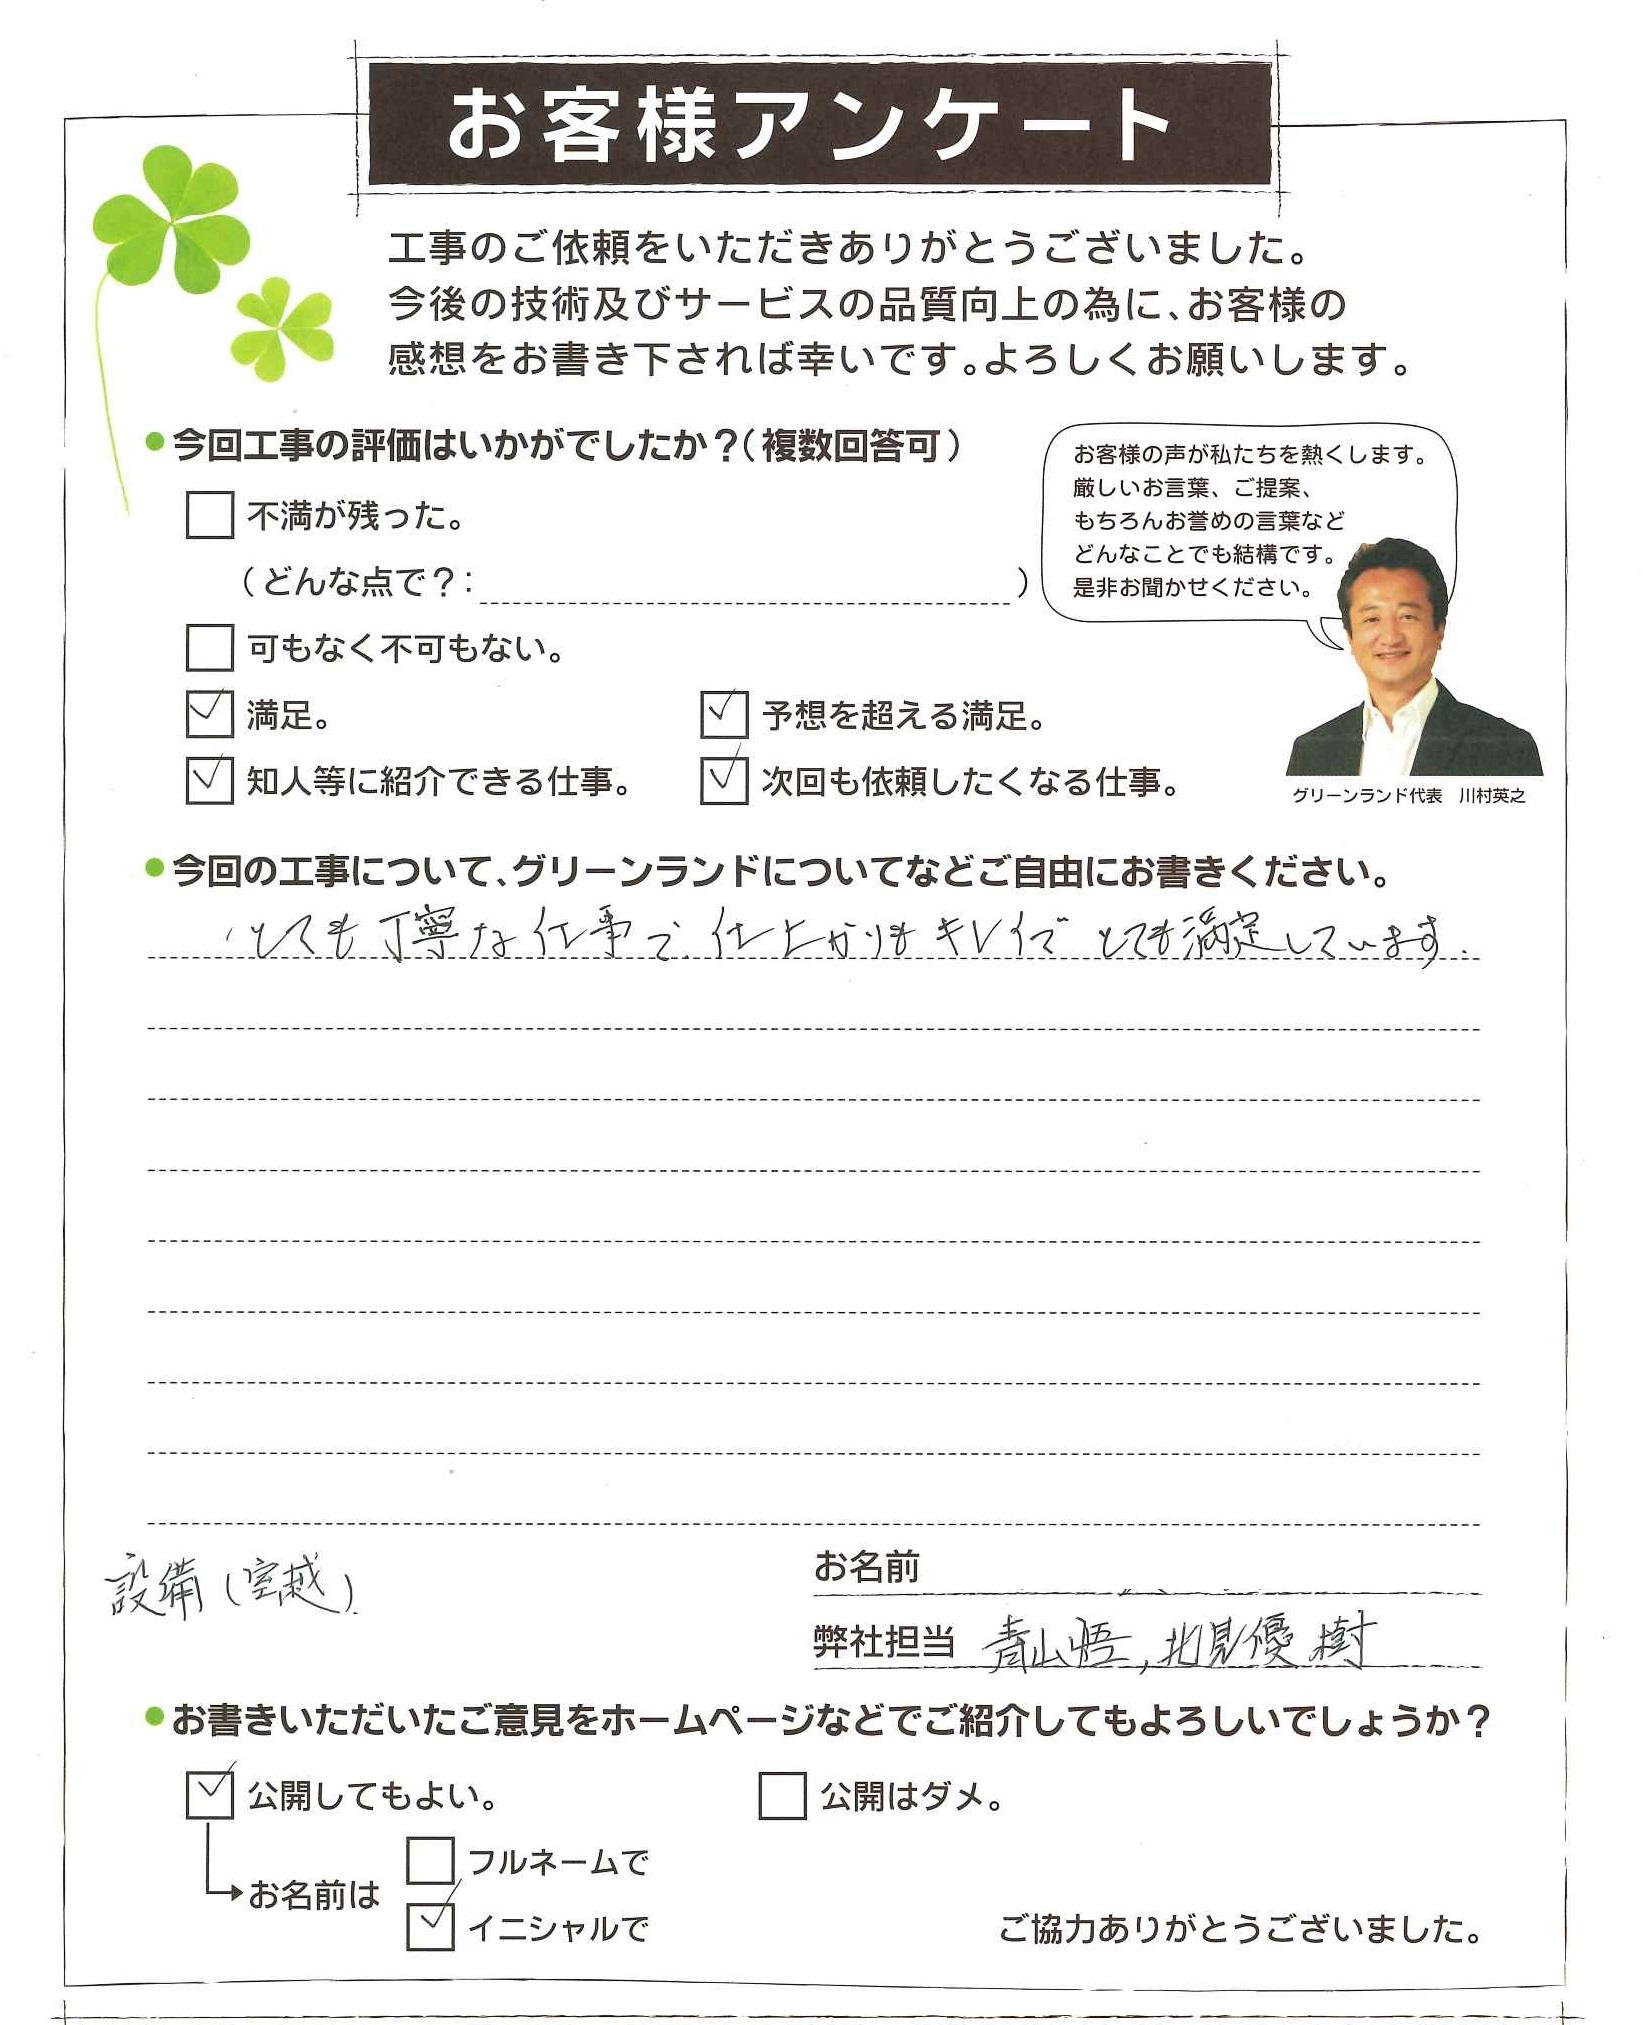 お客様アンケート
工事のご依頼をいただきありがとうございました。
今後の技術及びサービスの品質向上の為に、お客様の
感想をお書き下されば幸いです。よろしくお願いします。
●今回工事の評価はいかがでしたか?(複数回答可)
お客様の声が私たちを熱くします。
厳しいお言葉、ご提案、
もちろんお誉めの言葉など
どんなことでも結構です。
是非お聞かせください。
不満が残った。
(どんな点で?: )
可もなく不可もない。
満足。
予想を超える満足。
知人等に紹介できる仕事。
次回も依頼したくなる仕事。
グリーンランド代表 川村英之
●今回の工事について、グリーンランドについてなどご自由にお書きください。
とても丁寧な仕事で、仕上がりもキレイで とても満足しています.
お名前
設備(室越)
弊社担当 青山悟, 北見優樹
●お書きいただいたご意見をホームページなどでご紹介してもよろしいでしょうか?
公開してもよい。
公開はダメ。
フルネームで
お名前は
イニシャルで
ご協力ありがとうございました。